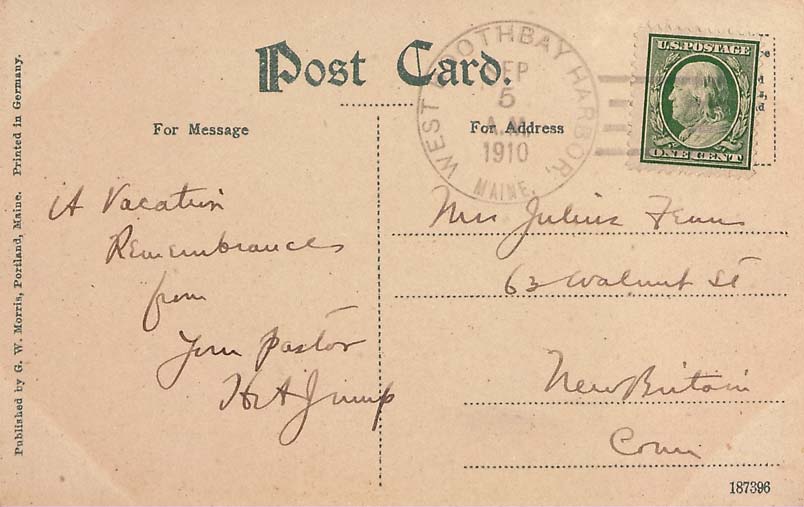 Post Card.
WEST BOOTHBAY HARBOR,
SEP
5
A.M.
1910
MAINE.
U.S. POSTAGE
ONE CENT
For Message
For Address
A Vacation
Remembrances
from
Your pastor
H A Jump
Mrs Julius
63 Walnut St
New Britain
Conn
Published by G. W. Morris, Portland, Maine. Printed in Germany.
187396